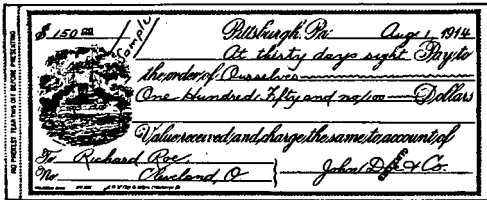 $150 00
Sample
Pittsburgh, Pa. Aug 1, 1914
At thirty days sight Pay to
the order of Ourselves
One Hundred Fifty and no/100 Dollars
Value received and charge the same to account of
To Richard Roe
No Cleveland, O
John Doe & Co.
NO PROTEST TEAR THIS OFF BEFORE PRESENTING